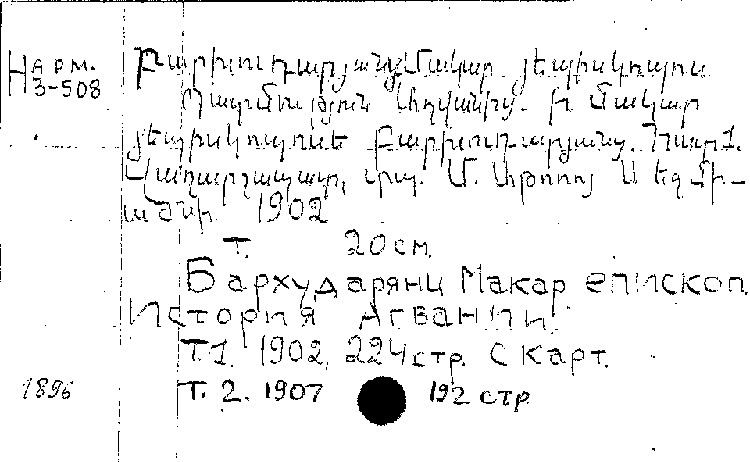 Н арм.
3-508
Բարխուդարյանց Մակար եպիսկոպոս
Պատմություն Աղվանից. Ի Մակար
եպիսկոպոսե Բարխուդարյանց. Հատ. 1.
Վաղարշապատ, տպ. Մ. Աթոռոյ Ս Եզմի-
ածնի 1902
Т. 20 см.
Бархударянц Макар епископ
История Агвании
Т.1. 1902, 224 стр. с карт.
1896
Т. 2. 1907 192 стр